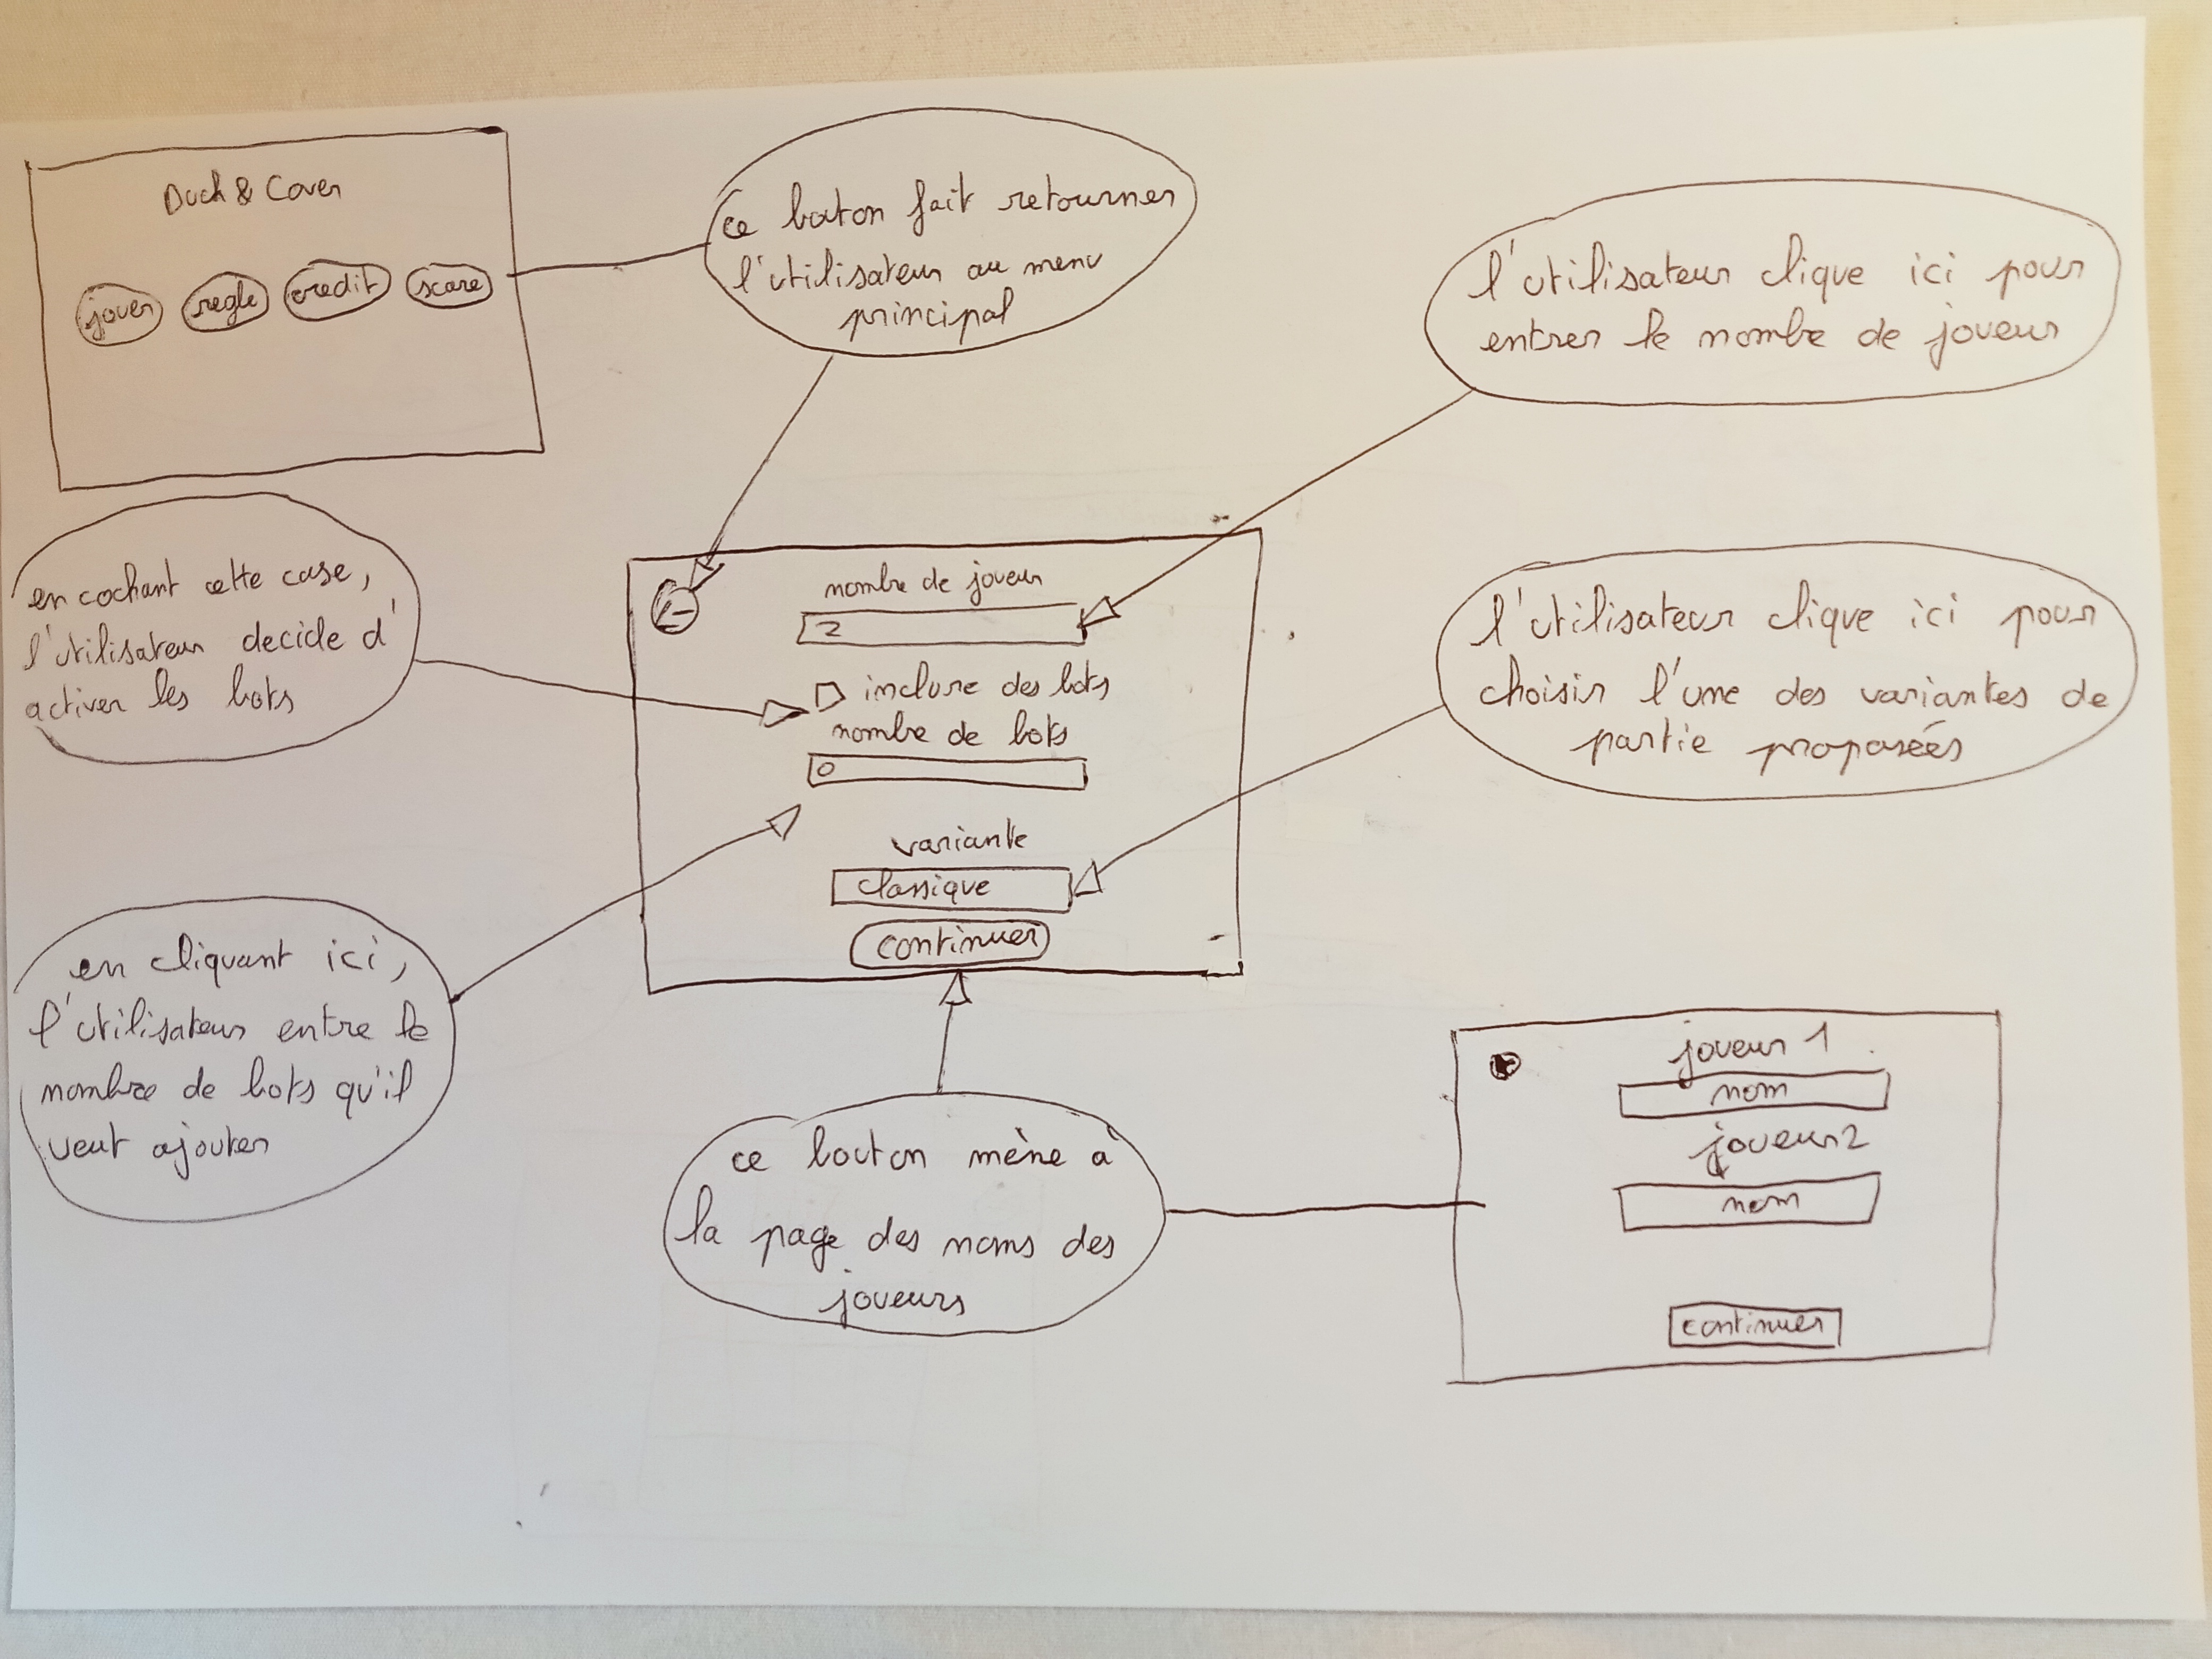 Duck & Cover
jouer regle credit score
ce bouton fait retourner
l'utilisateur au menu
principal
l'utilisateur clique ici pour
entrer le nombre de joueur
en cochant cette case,
l'utilisateur decide d'
activer les bots
nombre de joueur
2
inclure des bots
nombre de bots
0
variante
classique
continuer
l'utilisateur clique ici pour
choisir l'une des variantes de
partie proposées
en cliquant ici,
l'utilisateur entre le
nombre de bots qu'il
veut ajouter
ce bouton mène à
la page des noms des
joueurs
joueur 1
nom
joueur 2
nom
continuer